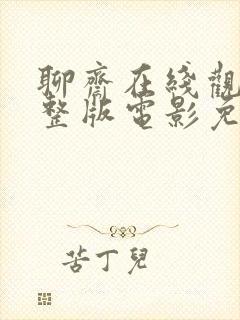 聊齋在綫觀
整版電影免
苦丁兒